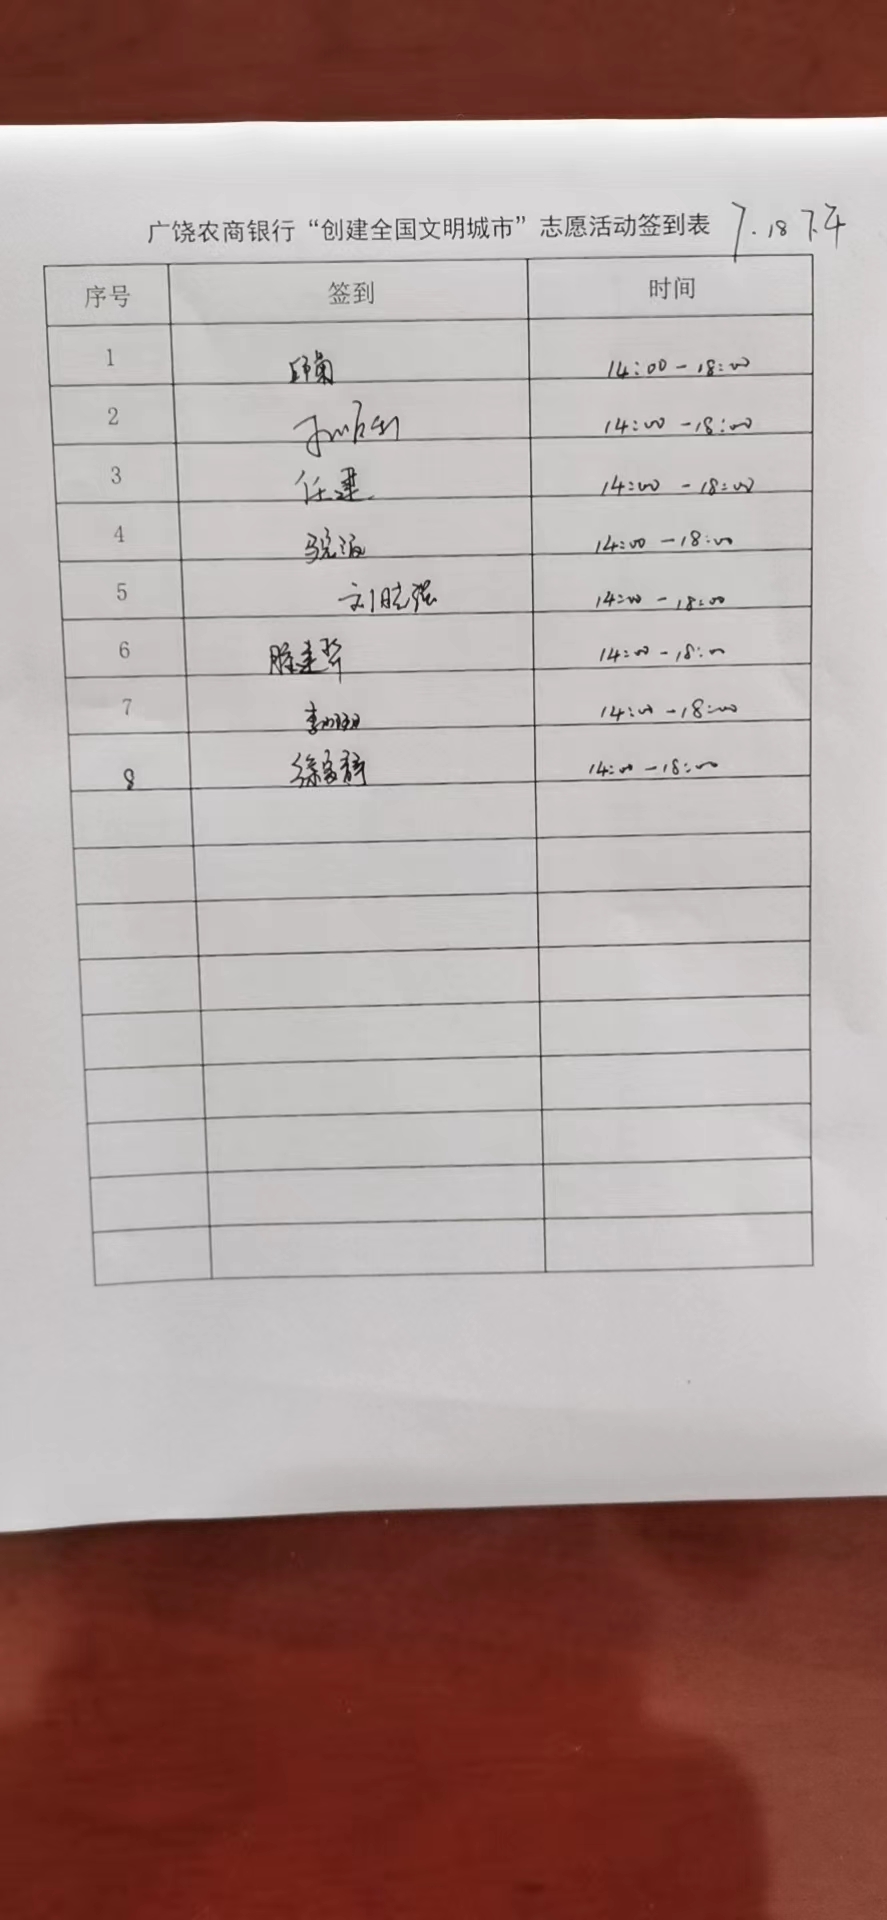 广饶农商银行“创建全国文明城市”志愿活动签到表 7.18下午
序号 签到 时间
1 14:00-18:00
2 14:00-18:00
3 任建 14:00-18:00
4 14:00-18:00
5 刘晓强 14:00-18:00
6 14:00-18:00
7 14:00-18:00
8 14:00-18:00